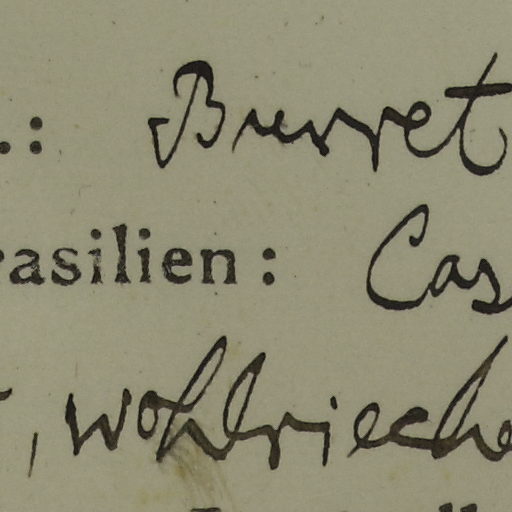 .: Burret
rasilien: Cas
, wohlrieche